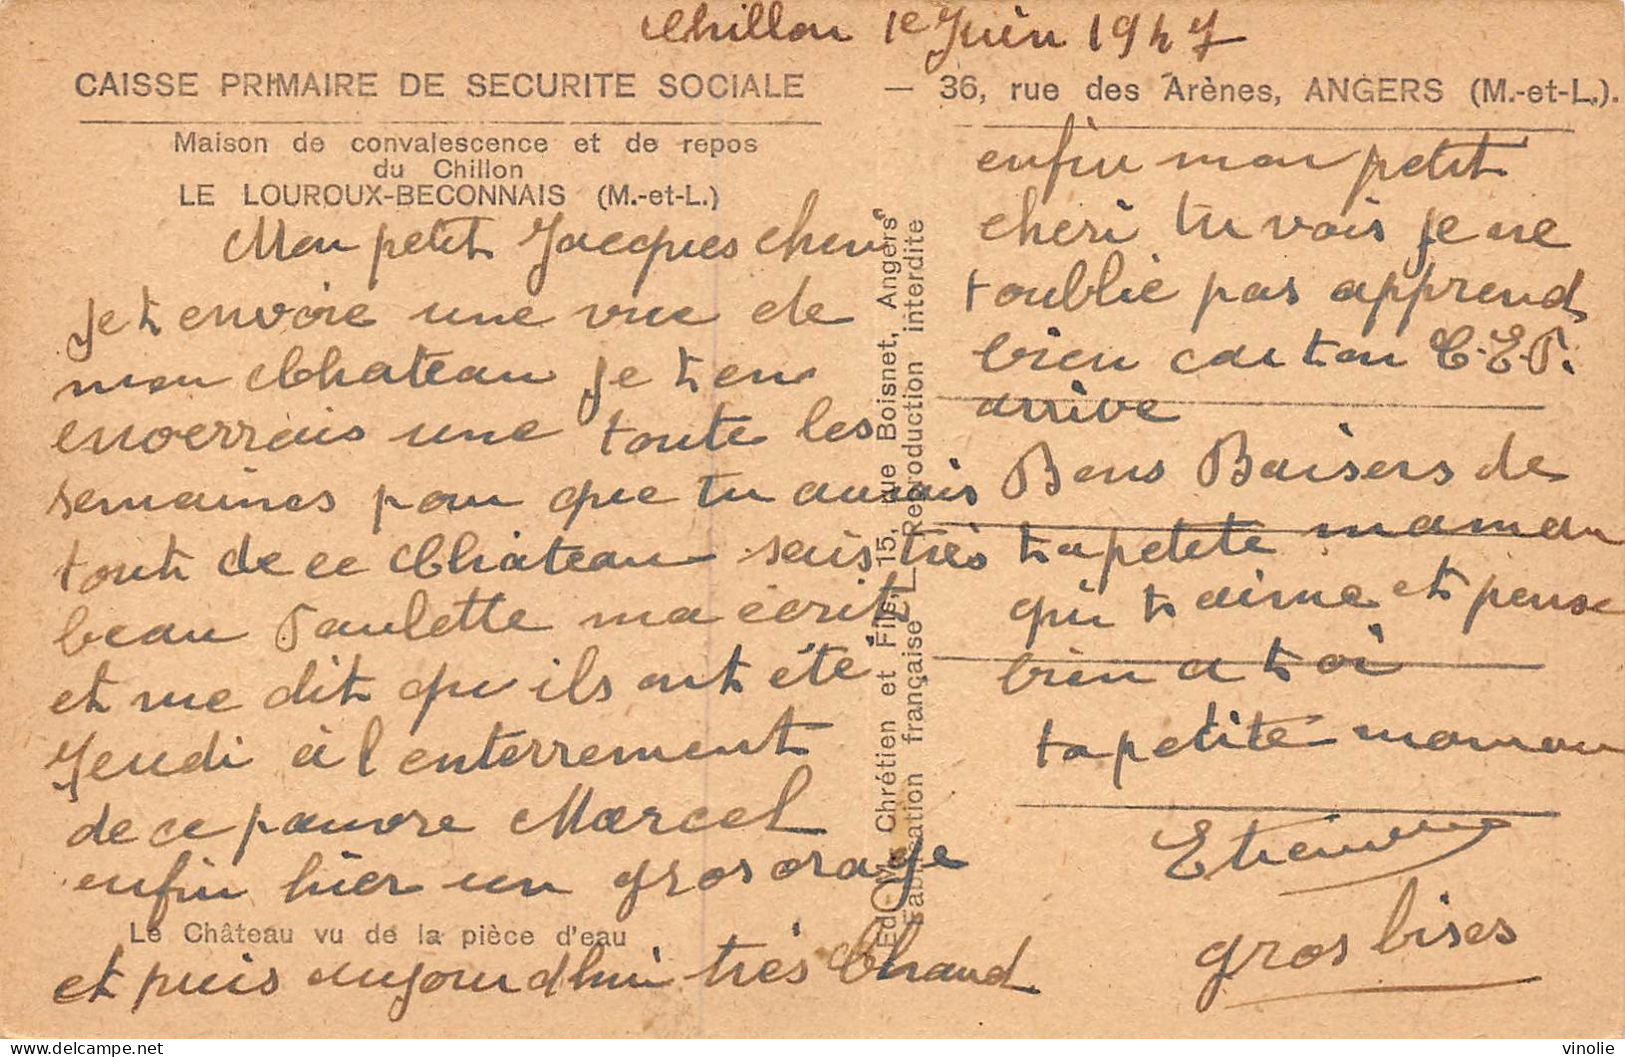 Chillon 1e Juin 1947
CAISSE PRIMAIRE DE SECURITE SOCIALE — 36, rue des Arènes, ANGERS (M.-et-L.).
Maison de convalescence et de repos
du Chillon
LE LOUROUX-BECONNAIS (M.-et-L.)
Mon petit Jacques cheri
je t envoie une vue de
mon Chateau je t en
enverrais une toute les
semaines pour que tu aurais
tout de ce Château sais très
beau Paulette ma écrit
et me dit qu ils ont été
Jeudi à l enterrement
de ce pauvre Marcel
enfin hier un gros orage
Le Château vu de la pièce d'eau
et puis aujourdhui très Chaud
Ed. Chrétien et Fils, 15, rue Boisnet, Angers
Fabrication française — Reproduction interdite
enfin mon petit
cheri tu vois je ne
t oublie pas apprend
bien car ton C.E.P.
arrive
Bons Baisers de
ta petite maman
qui t aime et pense
bien a toi
ta petite maman
Etiennette
gros bises
vinolie